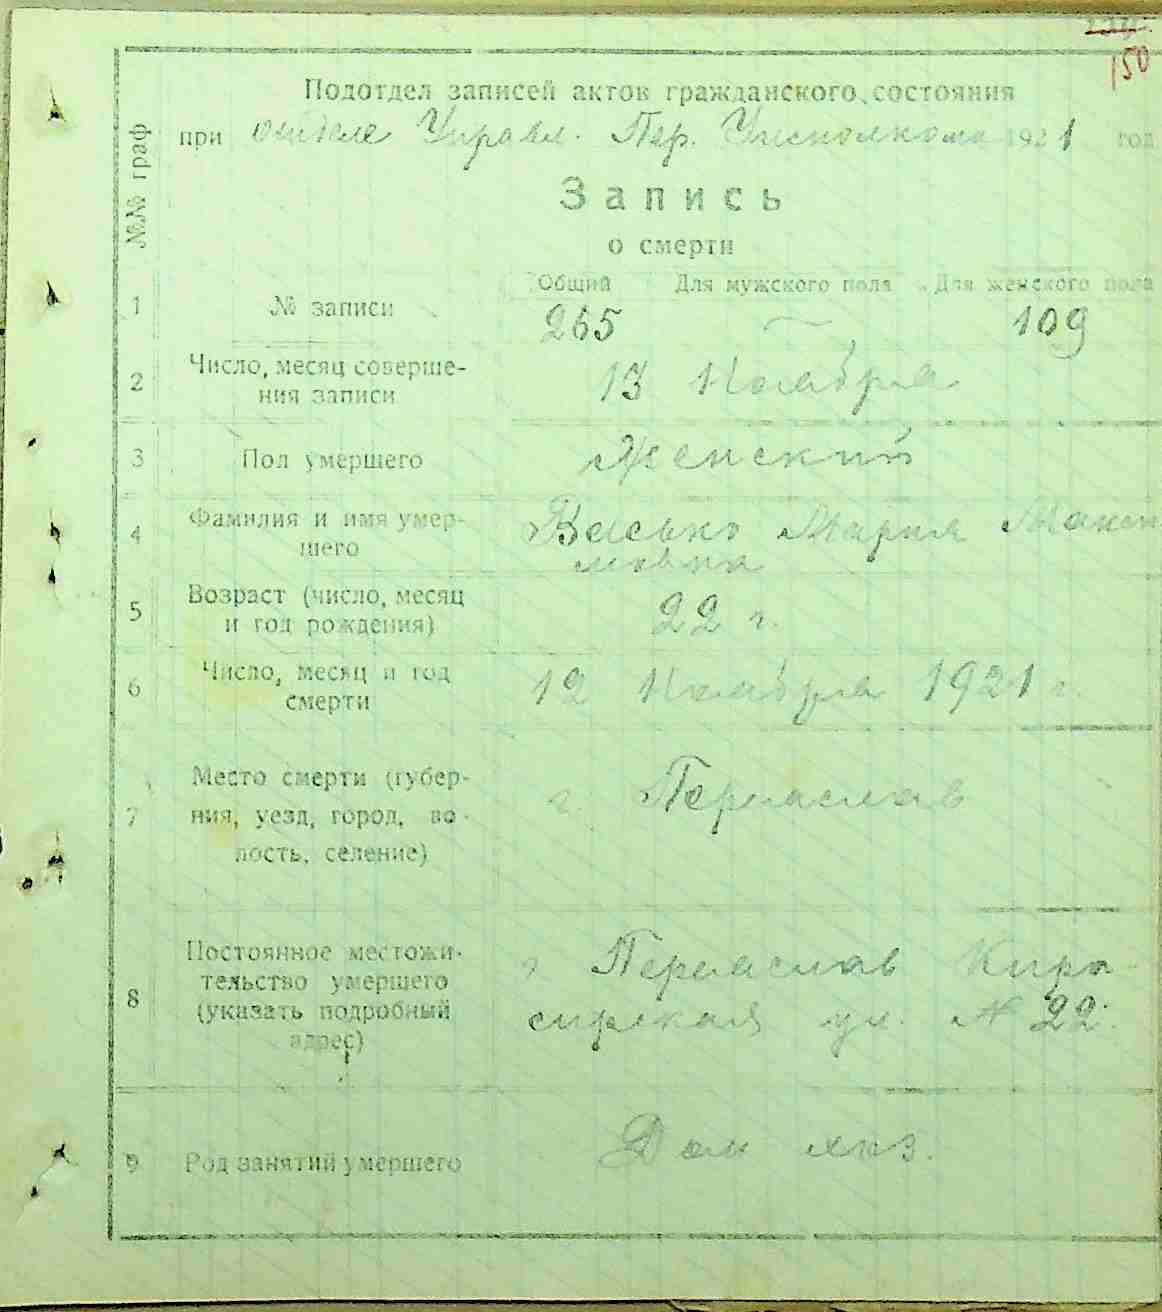 150
Подотдел записей актов гражданского состояния
при отделе Управл. Пер. Исполкома 1921 год
№№ граф
Запись
о смерти
Общий Для мужского пола Для женского пола
1 № записи 265 — 109
2 Число, месяц соверше-
ния записи 13 Ноября
3 Пол умершего Женский
4 Фамилия и имя умер-
шего Васько Мария Макси
мовна
5 Возраст (число, месяц
и год рождения) 22 г.
6 Число, месяц и год
смерти 12 Ноября 1921 г.
7 Место смерти (губер-
ния, уезд, город, во-
лость, селение) г. Переяслав
8 Постоянное местожи-
тельство умершего
(указать подробный
адрес) г. Переяслав Кира
сирская ул. № 22.
9 Род занятий умершего Дом хоз.